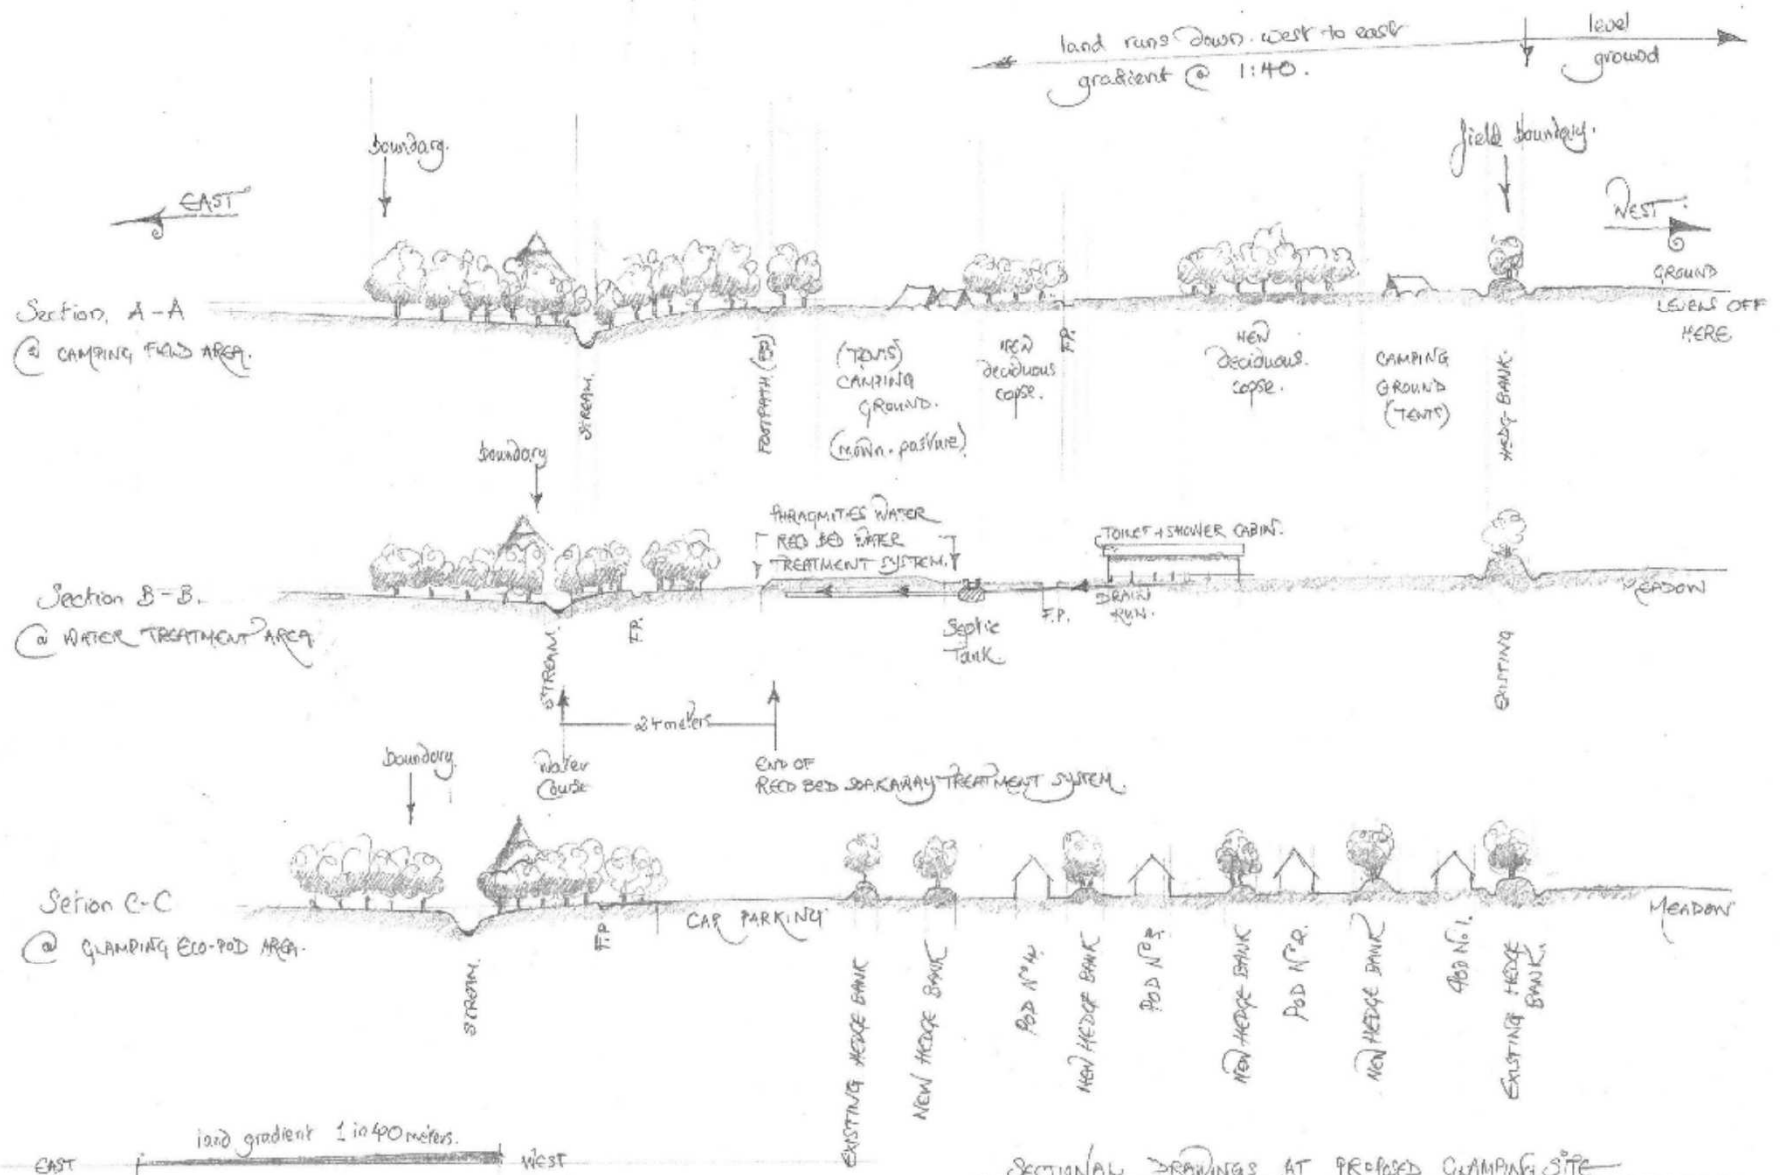 land runs down. west to east
gradient @ 1:40.
level
ground
boundary.
field boundary.
EAST
WEST
Section, A-A
@ CAMPING FIELD AREA.
GROUND
LEVELS OFF
HERE
STREAM.
FOOTPATH (FP)
(TENTS)
CAMPING
GROUND.
(mown pasture)
NEW
deciduous
copse.
F.P.
NEW
deciduous.
copse.
CAMPING
GROUND
(TENTS)
HEDG-BANK.
boundary
PHRAGMITES WATER
REED BED WATER
TREATMENT SYSTEM.
TOILET + SHOWER CABIN.
Section B-B.
@ WATER TREATMENT AREA
STREAM.
F.P.
Septic
Tank.
F.P.
DRAIN
RUN.
EXISTING
MEADOW
24 meters
boundary.
Water
Course
END OF
REED BED SOAKAWAY TREATMENT SYSTEM.
Setion C-C
@ GLAMPING ECO-POD AREA.
STREAM.
F.P
CAR PARKING
EXISTING HEDGE BANK
NEW HEDGE BANK
POD No 4.
NEW HEDGE BANK
POD No 3.
NEW HEDGE BANK
POD No 2.
NEW HEDGE BANK
POD No 1.
EXISTING HEDGE
BANK.
MEADOW
land gradient 1 in 40 meters.
EAST
WEST
SECTIONAL DRAWINGS AT PROPOSED GLAMPING SITE